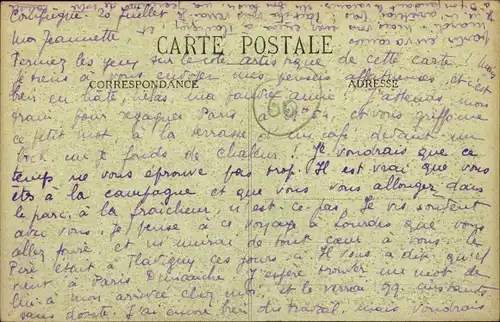 Compiègne 20 Juillet
Ma Jeannette
CARTE POSTALE
Fermez les yeux sur le côté artistique de cette carte ! mais
je tiens à vous envoyer mes pensées affectueuses, et c'est
CORRESPONDANCE
ADRESSE
bien en hâte, hélas, ma pauvre amie. J'attends mon
train pour regagner Paris à et vous griffonne
ce petit mot à la terrasse d'un café, devant un
bock, car je fonds de chaleur. Je voudrais que ce
temps ne vous éprouve pas trop. Il est vrai que vous
êtes à la campagne et que vous vous allongez dans
le parc, à la fraîcheur, n'est-ce pas. Je vis souvent
avec vous. Je pense à ce voyage à Lourdes que vous
allez faire et m'unirai de tout cœur à vous. Le
Père était à Flavigny ces jours-ci. Il vous a dit qu'il
vient à Paris Dimanche. J'espère trouver un mot de
lui à mon arrivée chez moi et le verrai qq. instants
sans doute. J'ai encore bien du travail, mais voudrais
66